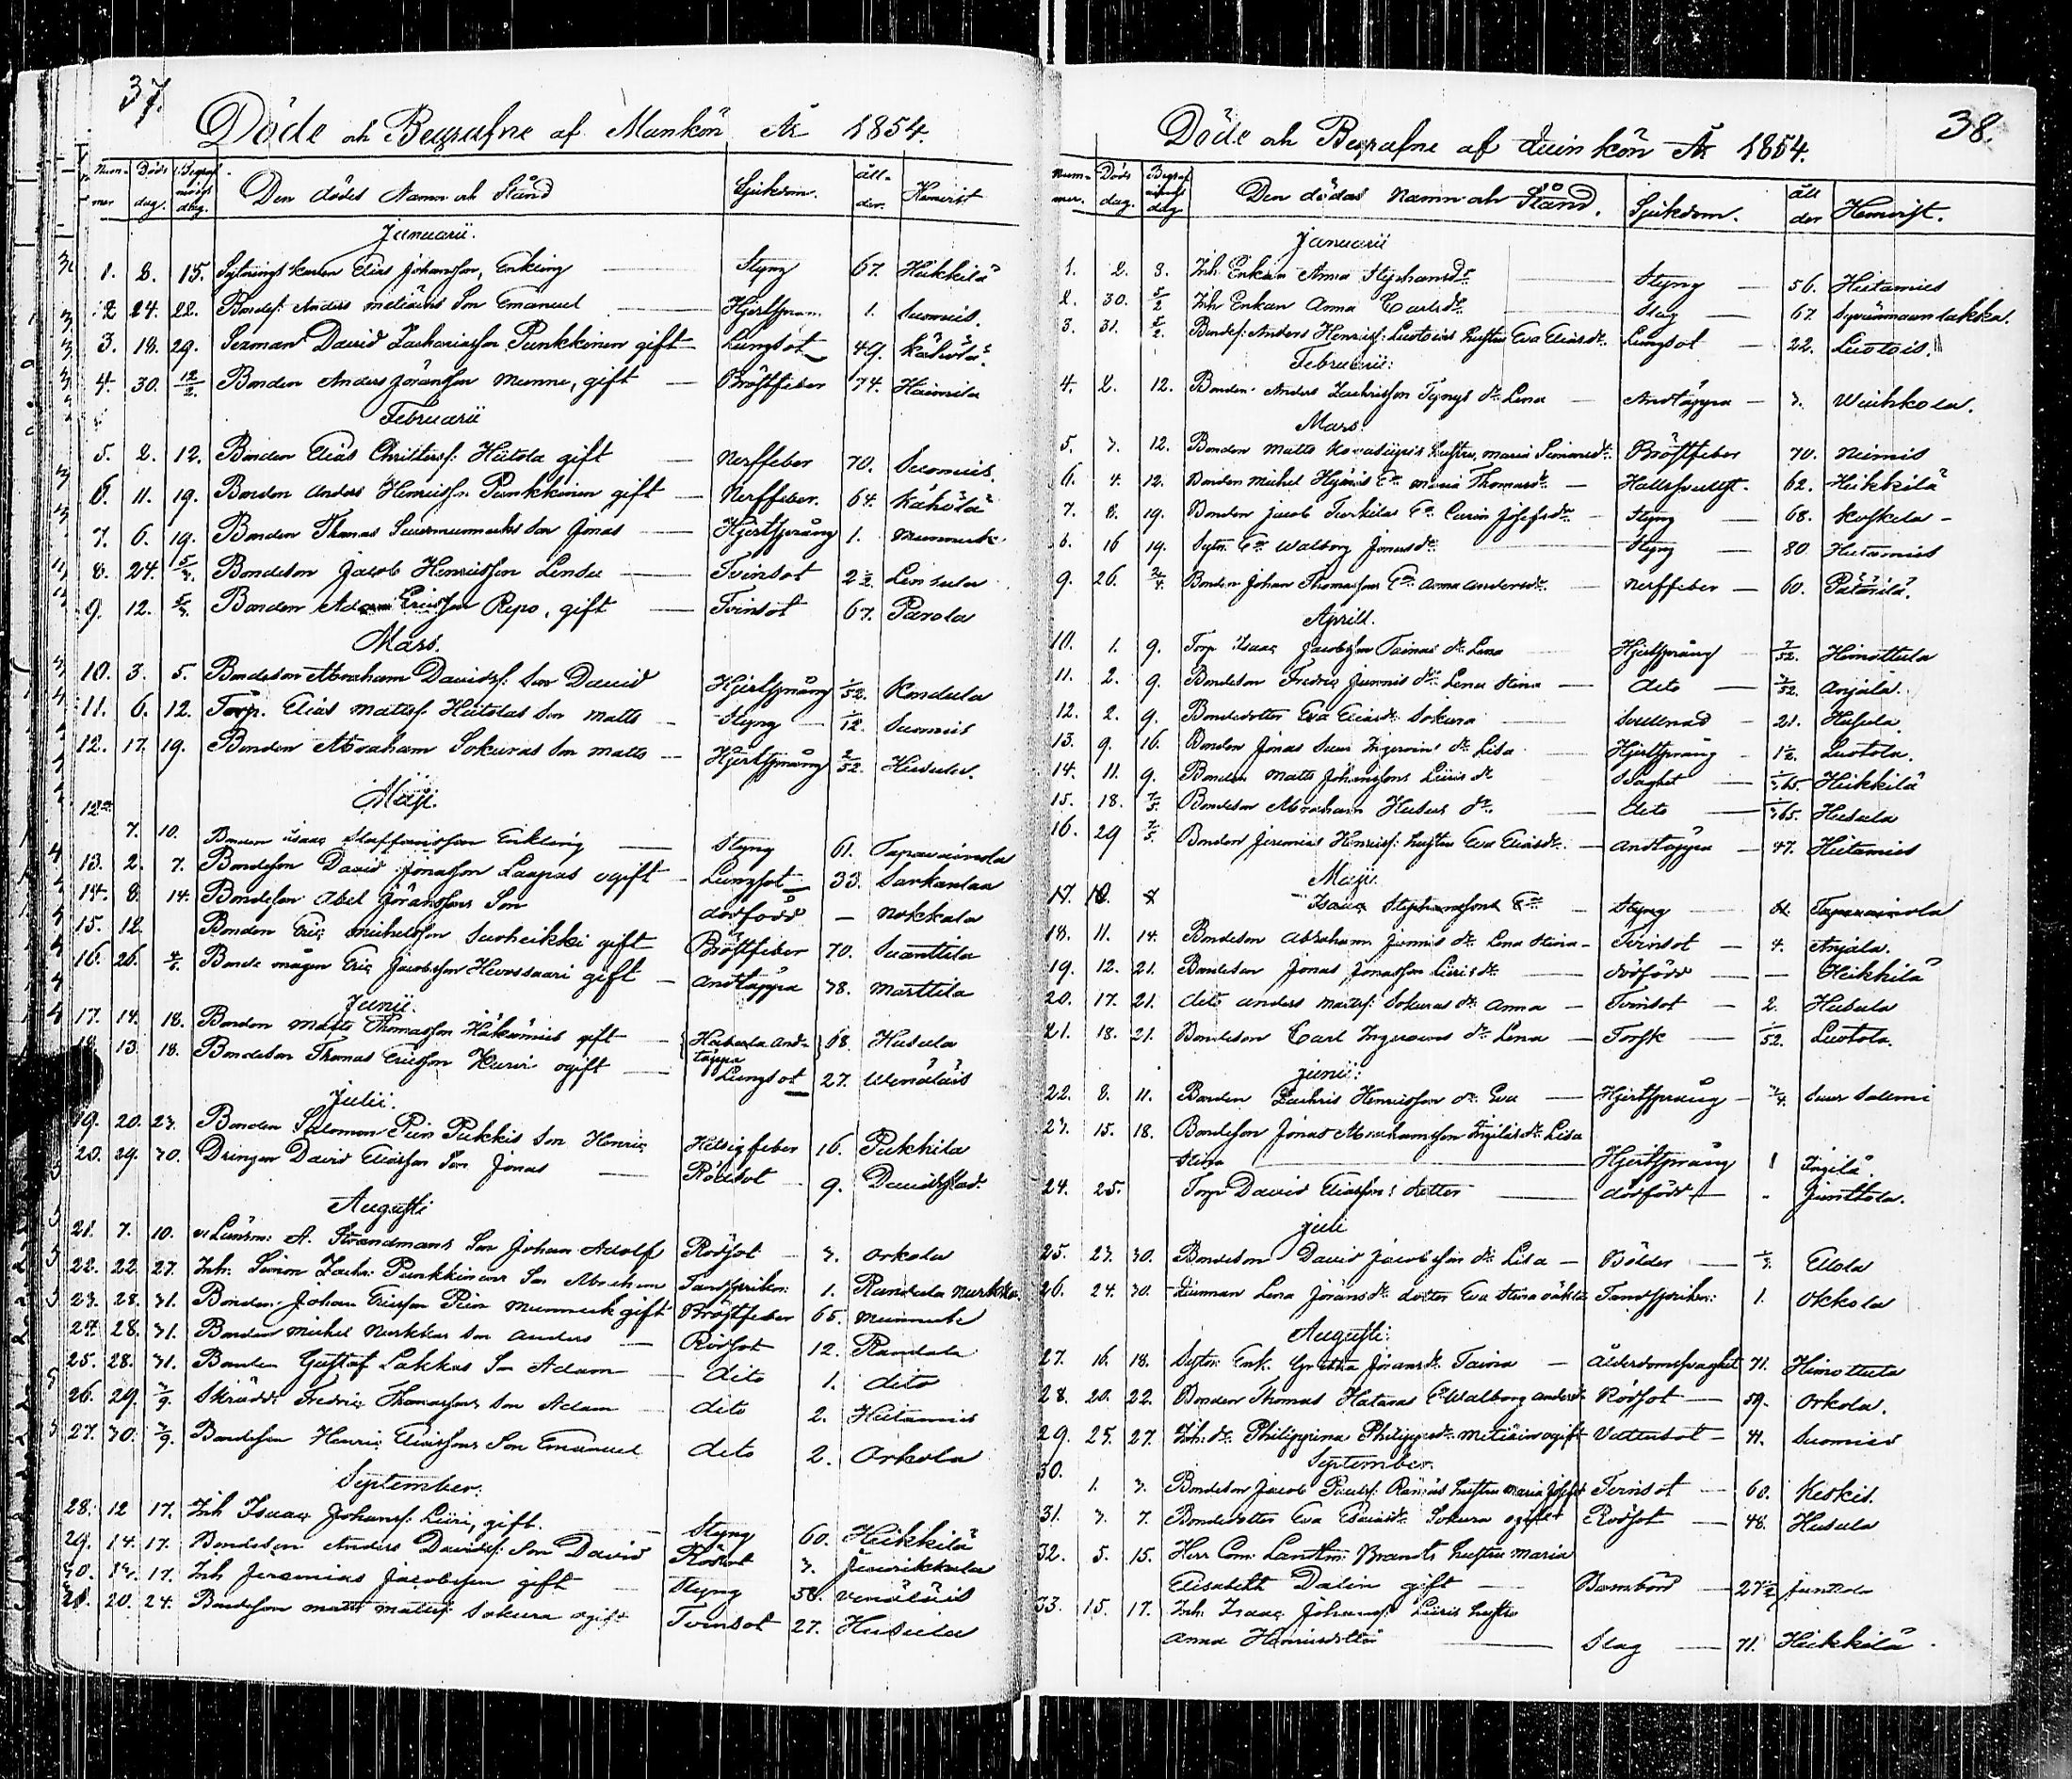 37.
Döde och Begrafne af Mankön År 1854.
Num-mer Döds dag. Begrafnings dag. Den dödes Namn och Stånd Sjukdom. äll-der. Hemvist
Januarii.
1. 2. 15. Sytningskarlen Elias Johansson, Enkling Styng 67. Heikkilä
2 24. 22. Bondes: Anders Son Emanuel Hjertspran. 1. Suomis.
3. 18. 29. Sexman David Zachariasson Punkkinen gift Lungsot 49. Kähölä
4. 30. 12/2. Bonden Anders Göransson Munne, gift Bröstfeber 74. Haimila
Februarii
5. 2. 12. Bonden Elias Christersf: Hütola gift Nerffeber 70. Suomis.
6. 11. 19. Bonden Anders Henricsson Punkkinen gift Nerffeber. 64. Kähölä
7. 6. 19. Bonden Thomas Son Jonas Hjertsprång 1. Mummuk
8. 24. 5/3. Bondeson Jacob Henricsson Lensu Tvinsot 2 1/2. Lensula
9. 12. 5/3. Bonden Adam Ericsson Repo, gift Tvinsot 67. Parola
Mars.
10. 3. 5. Bondeson Abraham Davidsf. Son David Hjertsprång 1/52. Kondula
11. 6. 12. Torp. Elias Mattsf. Hütolas Son Matts Styng 1/12. Suomis
12. 17. 19. Bonden Abraham Sokuras Son Matts Hjertsprång 2/52. Husula.
Maji.
12
7. 10. Bonden Isaac Staffansson Enkling Styng 61. Tapavainola
13. 2. 7. Bondeson David Jönasson Laapas ogift Lungsot 33. Sarkaslax
14. 8. 14. Bondeson Abel Göranssons Son dödfödd — Nokkala
15. 12. Bonden Eric Michelsson Suoheikki gift Bröstfeber 70. Suanttila
16. 26. 4/6. Bonde mågen Eric Jacobsson Huossaari gift Andtäppa 38. Marttila
Junii.
17. 14. 18. Bonden Matts Thomasson Häkämies gift Andtäppa 68. Husula
18. 13. 18. Bondeson Thomas Ericsson Harvi ogift Lungsot 27. Wenäläis
Julii.
19. 20. 23. Bonden Salomon Pien Pukkis Son Henric Hetsigfeber 16. Pukkila
20. 29. 30. Drängen David Eliasson Son Jonas Rödsot 9. Davidstad.
Augusti
21. 7. 10. v: Länsm: A. Strandmans Son Johan Adolf Rödsot 3. Orkola
22. 22. 27. Inh. Simon Zachr: Punkkinens Son Abraham Tandspriken: 1. Randala Murkka
23. 28. 31. Bonden Johan Ericsson Pien Mummuk gift Bröstfeber 65. Mummuk
24. 28. 31. Bonden Michel Murkkas Son Anders Rödsot 12. Randala
25. 28. 31. Bonden Gustaf Lakkas Son Adam dito 1. dito
26. 29. 3/9. Skrädd: Fredric Thomassons Son Adam dito 2. Hietamies
27. 30. 3/9. Bondeson Henric Eliassons Son Emanuel dito 2. Orkola
September:
28. 12 17. Inh Isaac Johansf: Liiri, gift. Styng 60. Heikkilä
29. 14. 17. Bondeson Anders Davidsf: Son David Rödsot 3. Juurikkala
30. 17. Inh Jeremias Jacobsson gift Styng 58. Venäläis
31. 20. 24. Bondeson Matts Mattsf: Sokura ogift Tvinsot 27. Husula
38.
Döde och Begrafne af Quinkön År 1854.
Num-mer. Döds dag. Begrafnings dag Den dödas Namn och Stånd. Sjukdom. äll der Hemvist.
Januarii
1. 2. 8. Inh: Enkan Anna Stephansdr Styng 56. Hietamies
2. 30. 5/2 Inh Enkan Anna Carlsdr. Slag 67. Syvänmaanlakka.
3. 31. 5/2. Bondes: Anders Henricsf: Luotois hustru Eva Eliasdr. Lungsot 22. Luotois.
Februarii:
4. 2. 12. Bonden Anders Zachrisson dr Lena Andtäppa 3. Weihkola.
Mars
5. 3. 12. Bonden Matts hustru Maria Simonsdr. Bröstfeber 70. Niemis
6. 4. 12. Bonden Michel En Maria Thomasdr. Hallsvulst. 62. Heikkilä
7. 8. 19. Bonden Jacob Turkilas En Carin Josefsdr Styng 68. Koskela
8. 16 19. Sytn: En Walborg Jonasdr Styng 80. Hietamies
9. 26. 2/4. Bonden Johan Thomassons En Anna Andersdr. Nerffeber 60. Pätärilä.
Aprill.
10. 1. 9. Torp Isaac Jacobsson Tainas dr Lena Hjertsprång 3/52. Himottula
11. 2. 9. Bondeson Fredric Junnis dr: Lena Stina dito 3/52. Anjala.
12. 2. 9. Bondedotter Eva Eliasdr Sokura Svullnad 21. Husula.
13. 9. 16. Bonden Jonas Suur Ingervins dr Lisa Hjertsprång 1 1/2. Luotola.
14. 11. 9. Bonden Matts Johanssons Liiris dr Svaghet 1/365. Heikkilä
15. 18. 7/5. Bondeson Abraham Husus dr. dito 1/365. Husula
16. 29 7/5. Bonden Jeremias Henricsf: hustru Eva Eliasdr. Andtäppa 47. Hietamies
Maji.
17. 10. 7 Isaac Stephanssons En Styng 61. Tapavainola
18. 11. 14. Bondeson Abraham Junnis dr. Lena Stina Tvinsot 4. Anjala.
19. 12. 21. Bondeson Jonas Jonasson Liiris dr. dödfödd — Heikkilä
20. 17. 21. dito Anders Mattsf: Sokuras dr Anna Tvinsot 2. Husula
21. 18. 21. Bondeson Carl Ingervins dr Lena Torsk 1/52. Luotola.
Junii:
22. 8. 11. Bonden Zachris Henricsson dr. Eva Hjertsprång 3/4. Suur Salemi
23. 15. 18. Bondeson Jonas Abrahamsson Ingiläs dr Lisa
Stina Hjertsprång 1 Ingilä.
24. 25. Torp David Eliassons dotter dödfödd - Junttola.
Juli
25. 23. 30. Bondeson David Jacobsson dr. Lisa Bölder 1/3. Ellola
26. 24. 30. Quinnan Lena Göransdr. dotter Eva Stina oäkta Tandspriken: 1. Okkola
Augusti:
27. 16. 18. Sytn: Enk. Gretha Göransdr. Taina Ålderdomssvaghet 71. Himottula
28. 20. 22. Bonden Thomas Hatavas En Walborg Andersdr Rödsot 59. Orkola.
29. 25. 27. Inh: dr. Philippina Philippsdr. ogift Vattusot 41. Suomis
September.
30.
1. 3. Bondeson Jacob Paulsf: hustru Maria Tvinsot 60. Keskis.
31. 3. 7. Bondedotter Eva Esaiasdr. Sokura ogift Rödsot 48. Husula
32. 5. 15. Herr Com: Landtm: Brandts hustru Maria
Elisabeth Dalin gift Barnbörd 27 1/2 Juntola
33. 15. 17. Inh. Isaac Johansf: Liiris hustru
Anna Henricsdotter Slag 71. Heikkilä